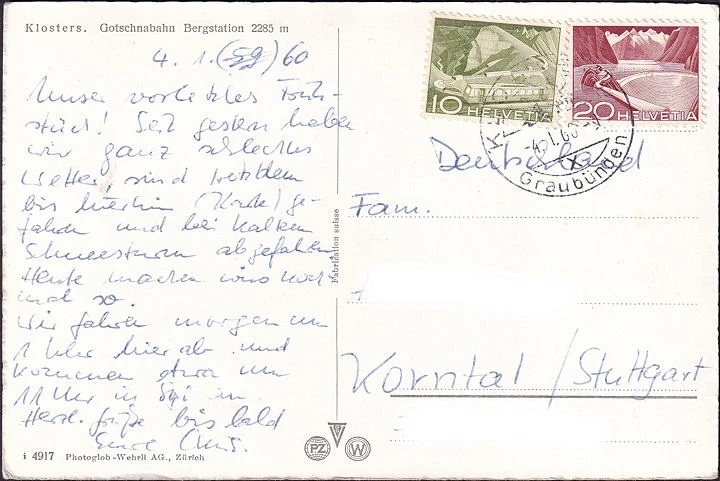 Klosters. Gotschnabahn Bergstation 2285 m
4. 1. (59) 60
Unser vorletztes Früh-
stück! Seit gestern haben
wir ganz schlechtes
Wetter, sind trotzdem
bis hierhin (Karte) ge-
fahren und bei kaltem
Schneesturm abgefahren
Heute machen wirs noch
mal so.
Wir fahren morgen um
1 Uhr hier ab und
kommen etwa um
11 Uhr in an.
Herzl. Grüße bis bald
Eure
i 4917 Photoglob-Wehrli AG., Zürich
Fabrication suisse
PZ
W
10 HELVETIA
20 HELVETIA
-4. 1. 60
X
Graubünden
Deutschland
Fam.
Korntal / Stuttgart